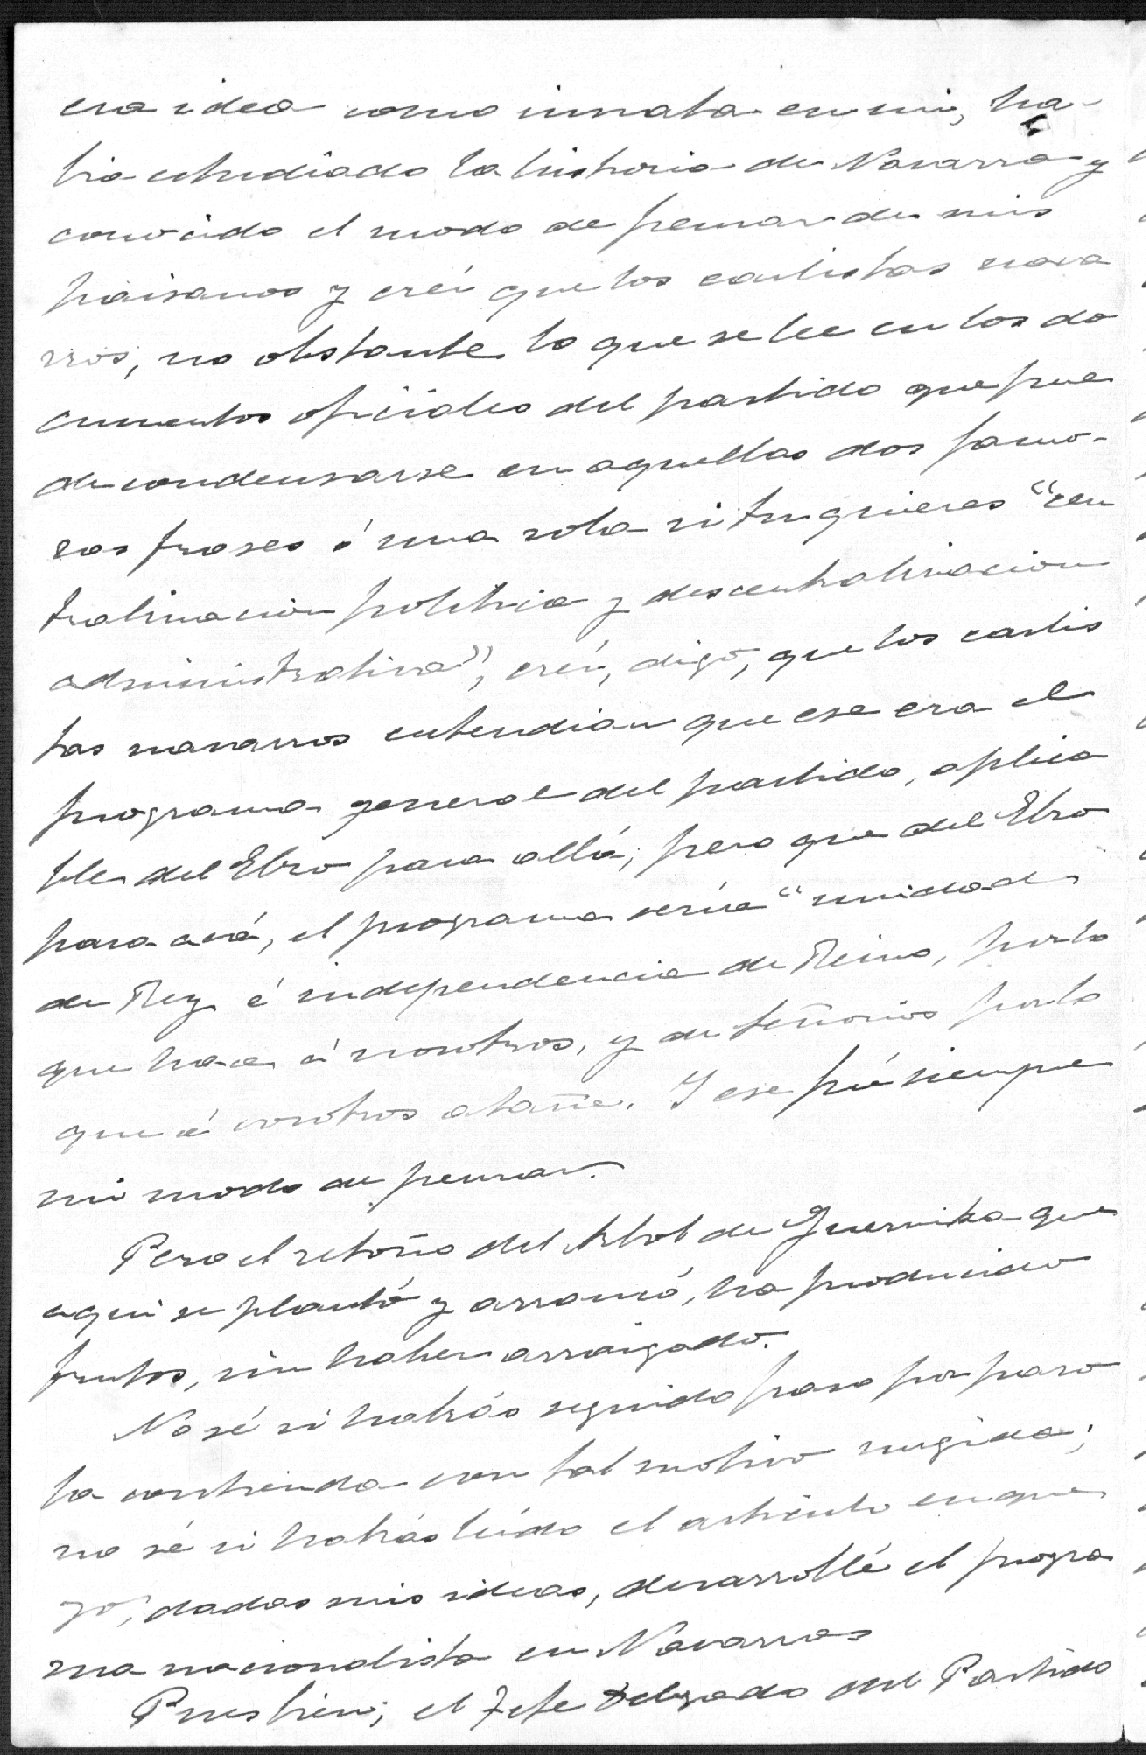 esa idea como innata en mí, ha-
bía estudiado la historia de Navarra y
conocido el modo de pensar de mis
paisanos y creí que los carlistas nava
rros, no obstante lo que se lee en los do
cumentos oficiales del partido que pue
de condensarse en aquellas dos famo-
sas frases ó una sola si tu quieres "cen
tralización política y descentralización
administrativa", creí, digo, que los carlis
tas navarros entendían que ese era el
programa general del partido, aplica
ble del Ebro para allá; pero que del Ebro
para acá, el programa sería "unidad
de Rey é independencia de Reino, por lo
que hace á nosotros, y de señorios por lo
que á vosotros atañe. Y ese fué siempre
mi modo de pensar.
Pero el retoño del Arbol de Guernika que
aquí se plantó y arrancó, ha producido
frutos, sin haber arraigado.
No sé si habrás seguido paso por paso
la contienda con tal motivo surgida;
no sé si habrás leído el artículo en que
yo, dadas mis ideas, desarrollé el progra
ma nacionalista en Navarra
Pues bien; el Jefe Delegado del Partido